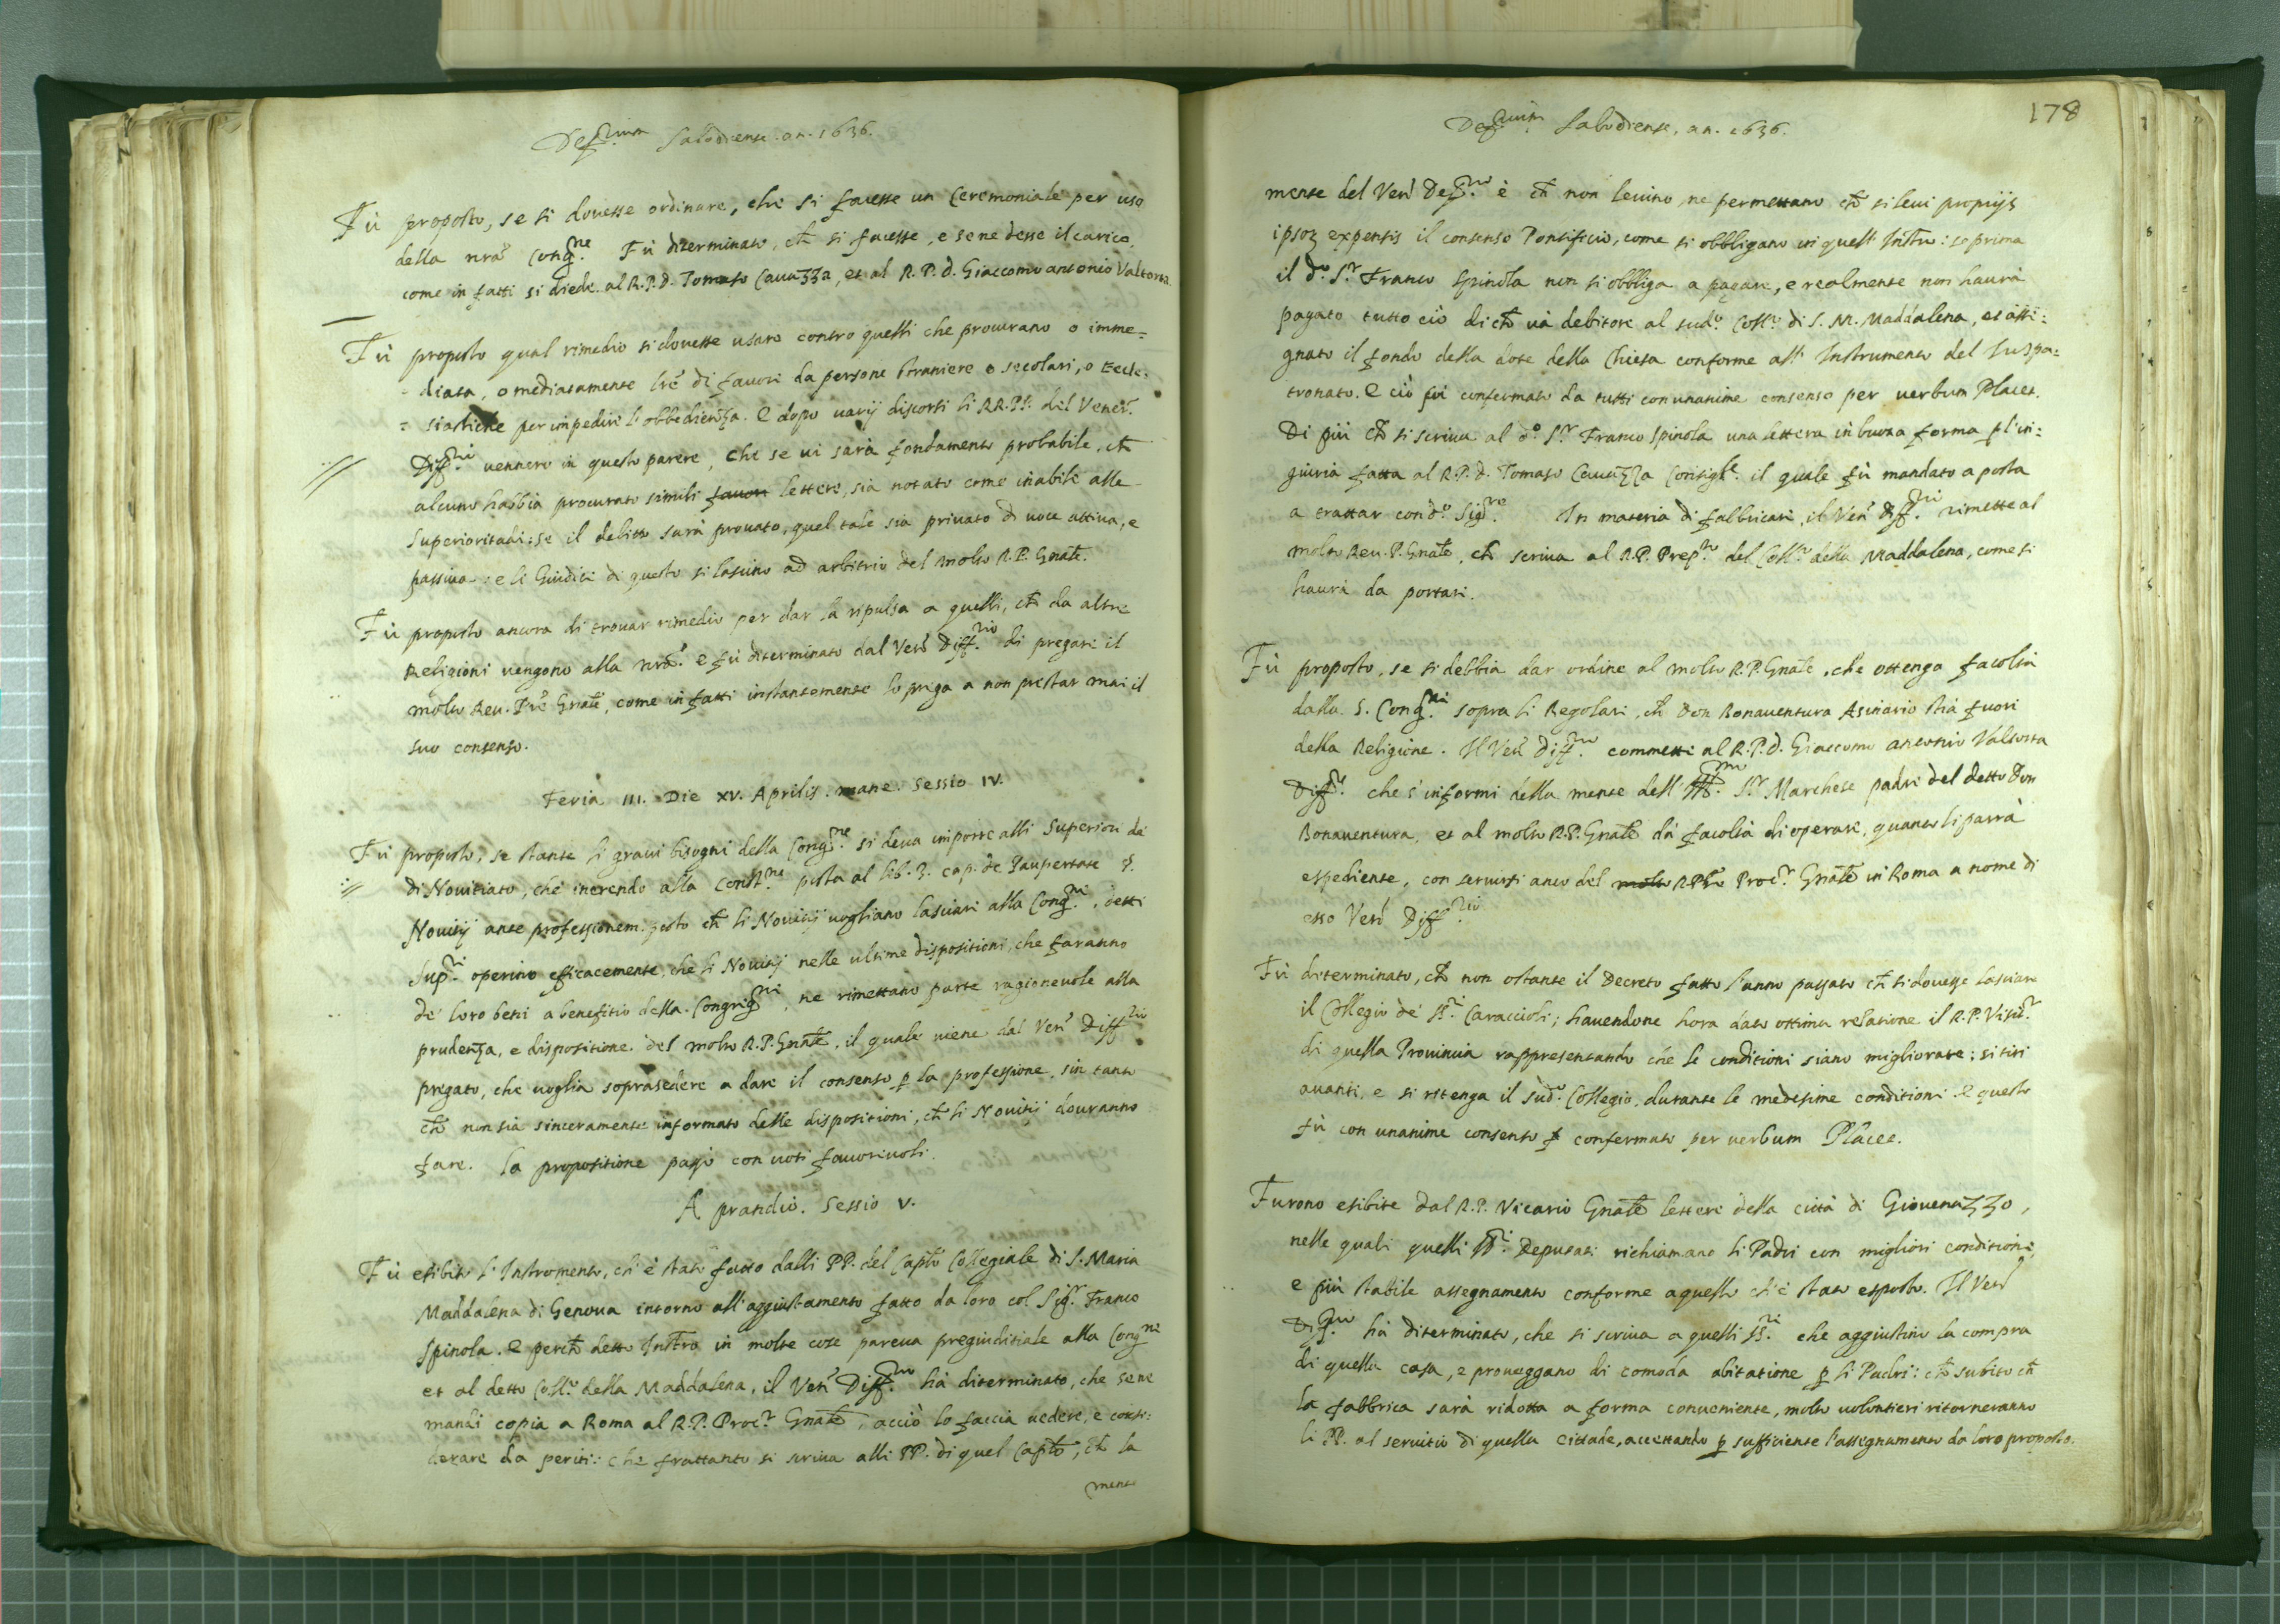 Deff.rium Salodiense. an. 1636.
Fù proposto, se si douesse ordinare, che si facesse un Ceremoniale per uso
della nrã Cong.ne Fù diterminato, ch̃ si facesse, e se ne desse il carico,
come in fatti si diede al R.P.d. Tomaso Cauazza, et al R.P.d. Giaccomo antonio Valtorta
Fù proposto qual rimedio si douesse usare contro quelli che procurano o imme=
diata, o mediatamente lrẽ di fauori da persone straniere o secolari, o Eccle:
= siastiche per impedire l'obbedienza. E dopo uarij discorsi li RR.PP. del Vener.
Diff.rii uennero in questo parere, che se ui sarà fondamento probabile, ch̃
alcuno habbia procurato simili fauori lettere, sia notato come inabile alle
Superioritadi: se il delitto sarà prouato, quel tale sia priuato di uoce attiua, e
passiua: e li Giudici di questo si lascino ad arbitrio del molto R.P. Gnãle.
Fù proposto ancora di trouar rimedio per dar la ripulsa a quelli, ch̃ da altre
Religioni uengono alla nrã. E fù diterminato dal Ven. Diff.rio di pregare il
molto Reu. Prẽ Gnãle, come in fatti instantemente lo priega a non prestar mai il
suo consenso.
Feria III. Die XV. Aprilis. mane. Sessio IV.
Fù proposto, se stante li graui bisogni della Cong.ne si deua imporre alli Superiori de
di Nouitiato, che inerendo alla Const.ne posta al lib. 3. cap. de Paupertate §.
Nouitij ante professionem: posto ch̃ li Nouitij uogliano lasciare alla Cong.ne, detti
Sup.ri operino efficacemente, che li Nouitij nelle ultime dispositioni, che faranno
de' loro beni a benefitio della Congreg.ne, ne rimettano parte ragioneuole alla
prudenza, e dispositione del molto R.P. Gnãle, il quale uiene dal Ven. Diff.rio
pregato, che uoglia soprasedere a dare il consenso p̱ la professione, sin tanto
ch̃ non sia sinceramente informato delle dispositioni, ch̃ li Nouitij douranno
fare. La propositione passò con uoti fauoreuoli.
A prandio. Sessio V.
Fù esibito l'Instromento, ch'è stato fatto dalli PP. del Caplõ Collegiale di S. Maria
Maddalena di Genoua intorno all'aggiustamento fatto da loro col Sig.r Franco
Spinola. E perch̃ detto Instro in molte cose pareua pregiuditiale alla Cong.ne
et al detto Coll.o della Maddalena, il Ven. Diff.rio hà diterminato, che se ne
mandi copia a Roma al R.P. Proc.r Gnãle, acciò lo faccia uedere, e consi:
derare da periti: che frattanto si scriua alli PP. di quel Caplõ, ch̃ la
mente
178
Deff.rium Salodiense, an. 1636.
mente del Ven. Def.rio è ch̃ non leuino, ne permettano ch̃ si leui propriis
ipsoꝝ expensis il consenso Pontificio, come si obbligano in quell'Instro: se prima
il d.o S.r Franco Spinola non si obbliga a pagare, e realmente non haurà
pagato tutto ciò di ch̃ uà debitore al sud.o Coll.o di S. M. Maddalena, et assi:
gnato il fondo della dote della Chiesa conforme all'Instrumento del Iuspa=
tronato. E ciò fù confermato da tutti con unanime consenso per uerbum Placet.
Di più ch̃ si scriua al d.o S.r Franco Spinola una lettera in buona forma p l'in:
giuria fatta al R.P.d. Tomaso Cauazza Consigl.e il quale fù mandato a posta
a trattar con d.o Sig.re In materia di fabbricare, il Ven. Diff.rio rimette al
molto Reu. P. Gnãle, ch̃ scriua al R.P. Prep.to del Coll.o della Maddalena, come si
haurà da portare.
Fù proposto, se si debbia dar ordine al molto R.P. Gnãle, che ottenga facoltà
dalla S. Cong.ne sopra li Regolari, ch̃ Don Bonauentura Asinario stia fuori
della Religione. Il Ven. Diff.rio commette al R.P.d. Giaccomo antonio Valtorta
Diff.re che s'informi della mente dell'Ill.mo S.r Marchese padre del detto Don
Bonauentura, et al molto R.P. Gnãle dà facoltà di operare, quanto li parrà
espediente, con seruirsi anco del molto R.P. Proc.r Gnãle in Roma a nome di
esso Ven. Diff.rio
Fù diterminato, ch̃ non ostante il Decreto fatto l'anno passato ch̃ si douesse lasciare
il Collegio de' SS.ri Caraccioli; hauendone hora dato ottima relatione il R.P. Visit.r
di quella Prouincia rappresentando che le conditioni siano migliorate: si tiri
auanti, e si ritenga il sud.o Collegio, durante le medesime conditioni. E questo
fù con unanime consenso confermato per uerbum Placet.
Furono esibite dal R.P. Vicario Gnãle lettere della città di Giouenazzo,
nelle quali quelli SS.ri Deputati richiamano li Padri con migliori conditioni,
e più stabile assegnamento conforme a quello ch'è stato esposto. Il Ven.
Diff.rio hà diterminato, che si scriua a quelli SS.ri che aggiustino la compra
di quella casa, e proueggano di comoda abitatione p̱ li Padri: ch̃ subito ch̃
la fabbrica sarà ridotta a forma conueniente, molto uolontieri ritorneranno
li PP. al seruitio di quella Cittade, accettando p̱ sufficiente l'assegnamento da loro proposto.